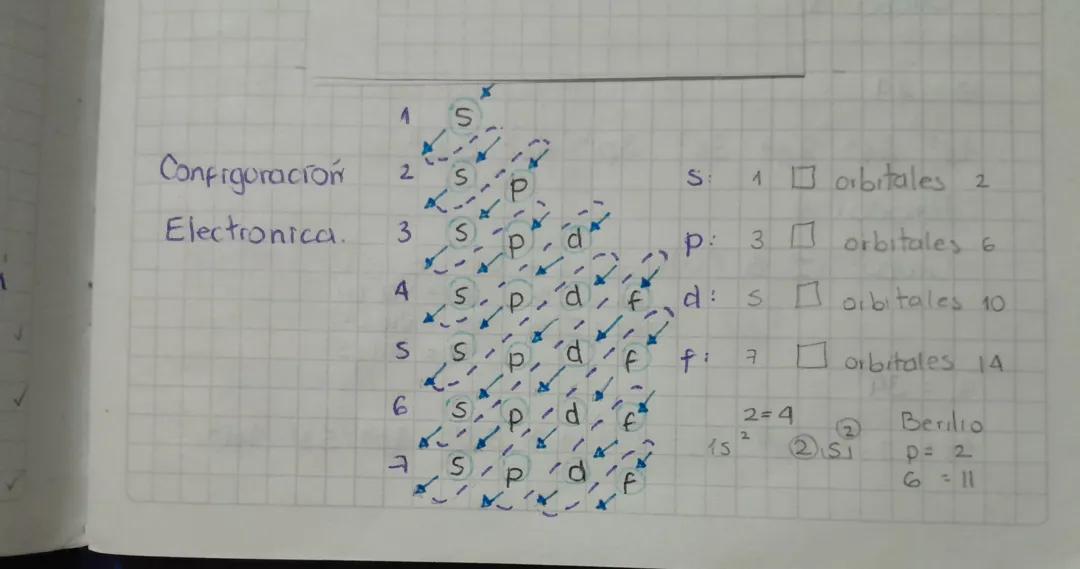 Configuración
Electronica.
1 s
2 s p
3 s p d
4 s p d f
5 s p d f
6 s p d f
7 s p d f
s: 1 □ orbitales 2
p: 3 □ orbitales 6
d: 5 □ orbitales 10
f: 7 □ orbitales 14
2=4
1s² ② s ②
Berilio
p= 2
G = 11